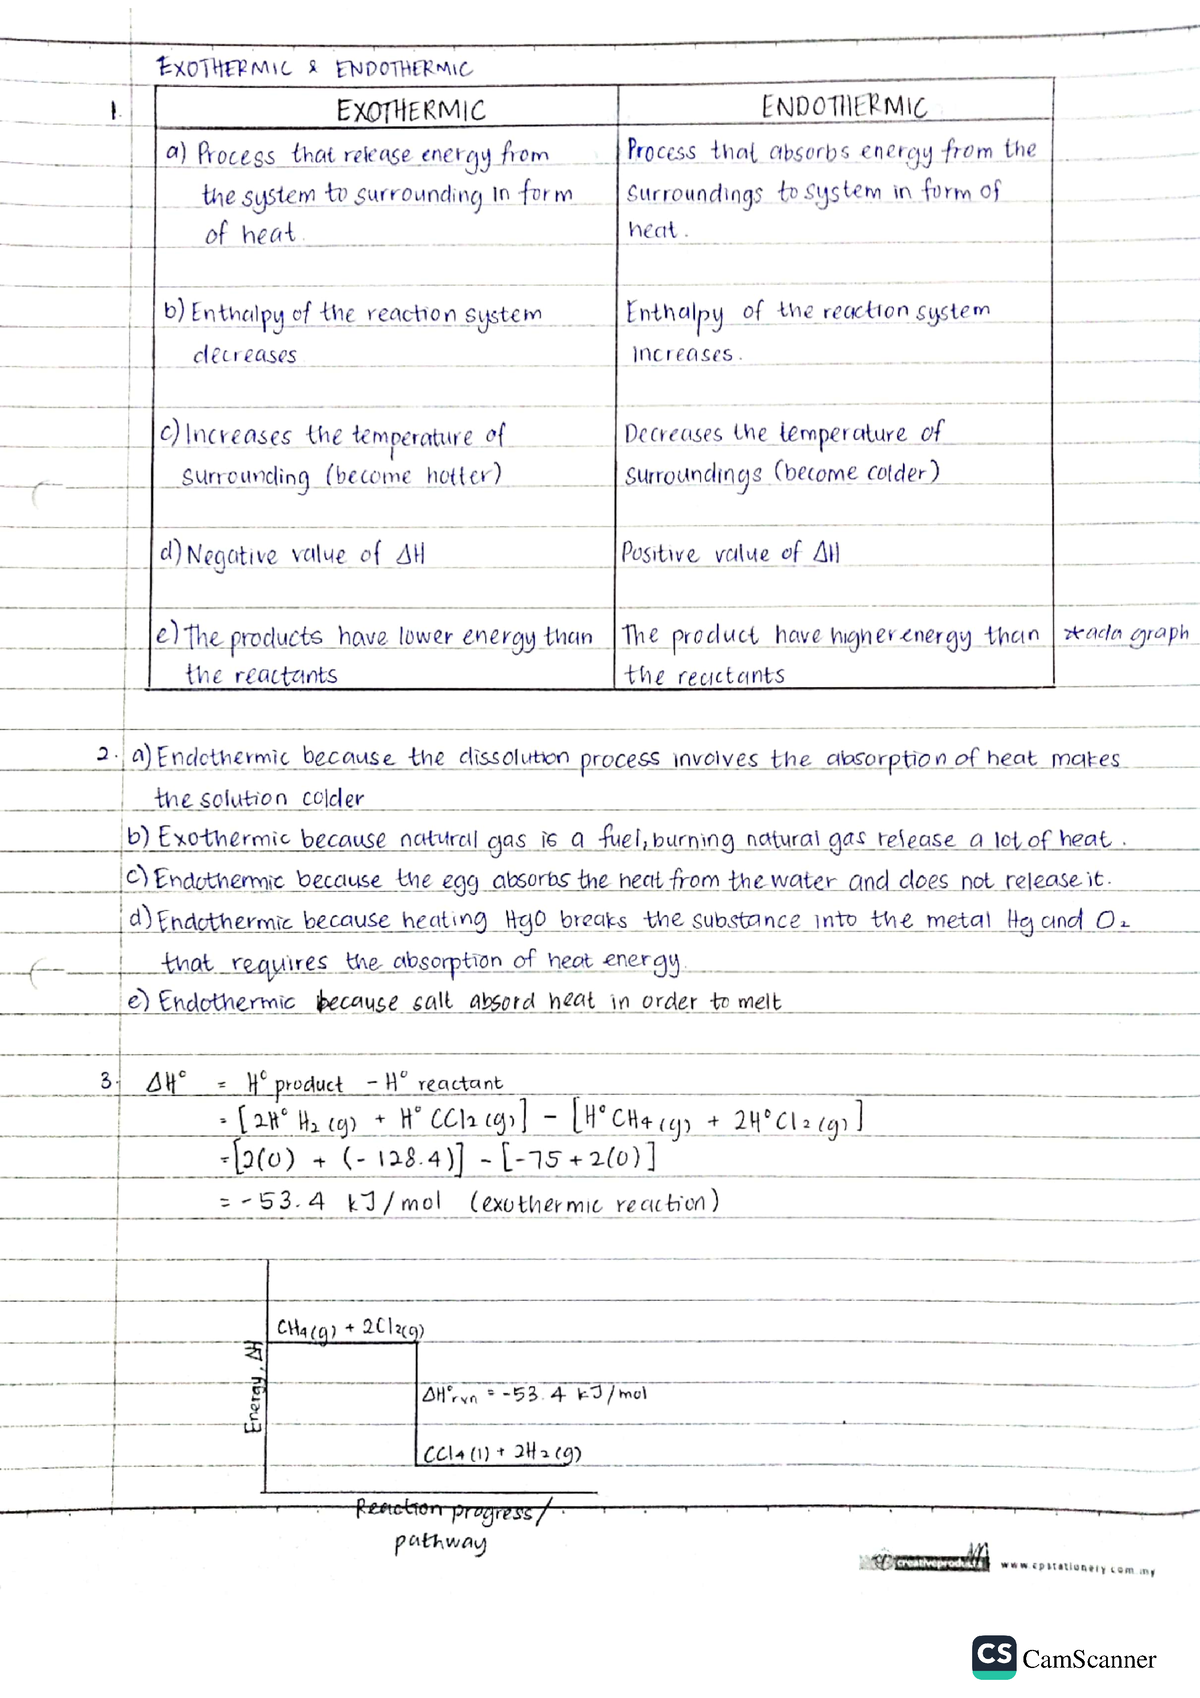 EXOTHERMIC & ENDOTHERMIC
1.
EXOTHERMIC
ENDOTHERMIC
a) Process that release energy from
the system to surrounding in form
of heat.
Process that absorbs energy from the
surroundings to system in form of
heat.
b) Enthalpy of the reaction system
decreases
Enthalpy of the reaction system
increases.
c) Increases the temperature of
surrounding (become hotter)
Decreases the temperature of
surroundings (become colder)
d) Negative value of ΔH
Positive value of ΔH
e) The products have lower energy than
the reactants
The product have higher energy than
the reactants
*ada graph
2. a) Endothermic because the dissolution process involves the absorption of heat makes
the solution colder
b) Exothermic because natural gas is a fuel, burning natural gas release a lot of heat.
c) Endothermic because the egg absorbs the heat from the water and does not release it.
d) Endothermic because heating HgO breaks the substance into the metal Hg and O₂
that requires the absorption of heat energy.
e) Endothermic because salt absord heat in order to melt
3. ΔH° = H° product - H° reactant
= [2H° H₂ (g) + H° CCl₂ (g)] - [H° CH₄ (g) + 2H° Cl₂ (g)]
= [2(0) + (-128.4)] - [-75 + 2(0)]
= -53.4 kJ/mol (exothermic reaction)
CH₄(g) + 2Cl₂(g)
Energy, ΔH
ΔH°rxn = -53.4 kJ/mol
CCl₄(l) + 2H₂(g)
Reaction progress/
pathway
www.cpstationery.com.my
CS CamScanner